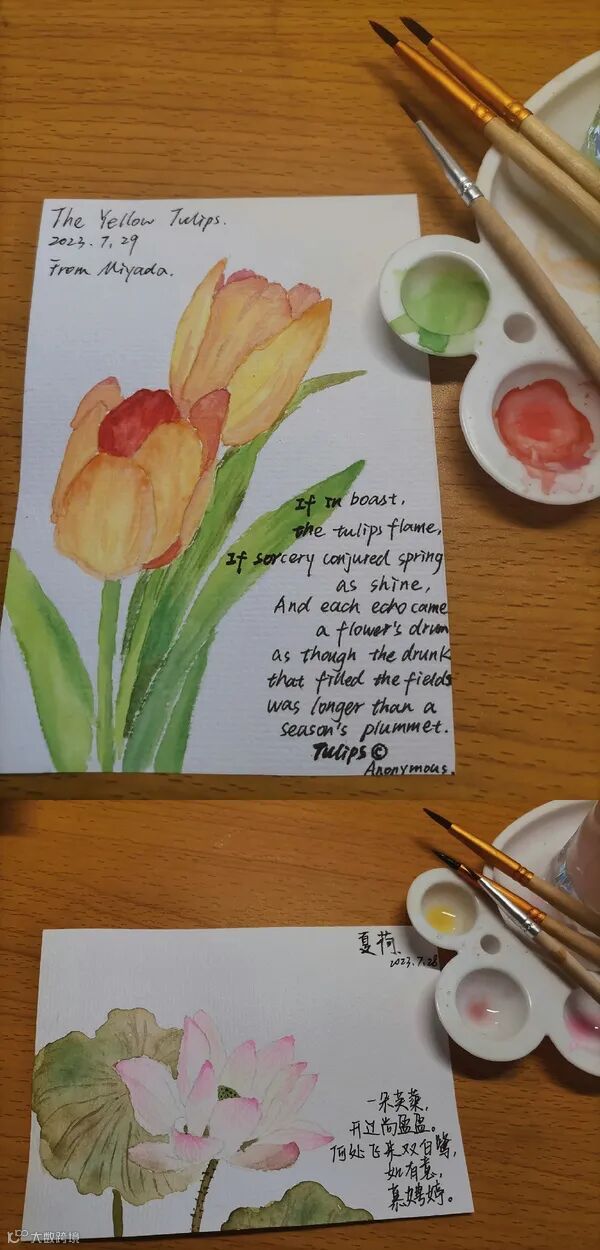 The Yellow Tulips.
2023.7.29
From Miyada.
If in boast,
the tulips flame,
If sorcery conjured spring
as shine,
And each echo came
a flower's drum
as though the drunk
that filled the fields
was longer than a
season's plummet.
Tulips ©
Anonymous.
夏荷
2023.7.28
一朵芙蕖,
开过尚盈盈。
何处飞来双白鹭,
如有意,
慕娉婷。
大数跨境